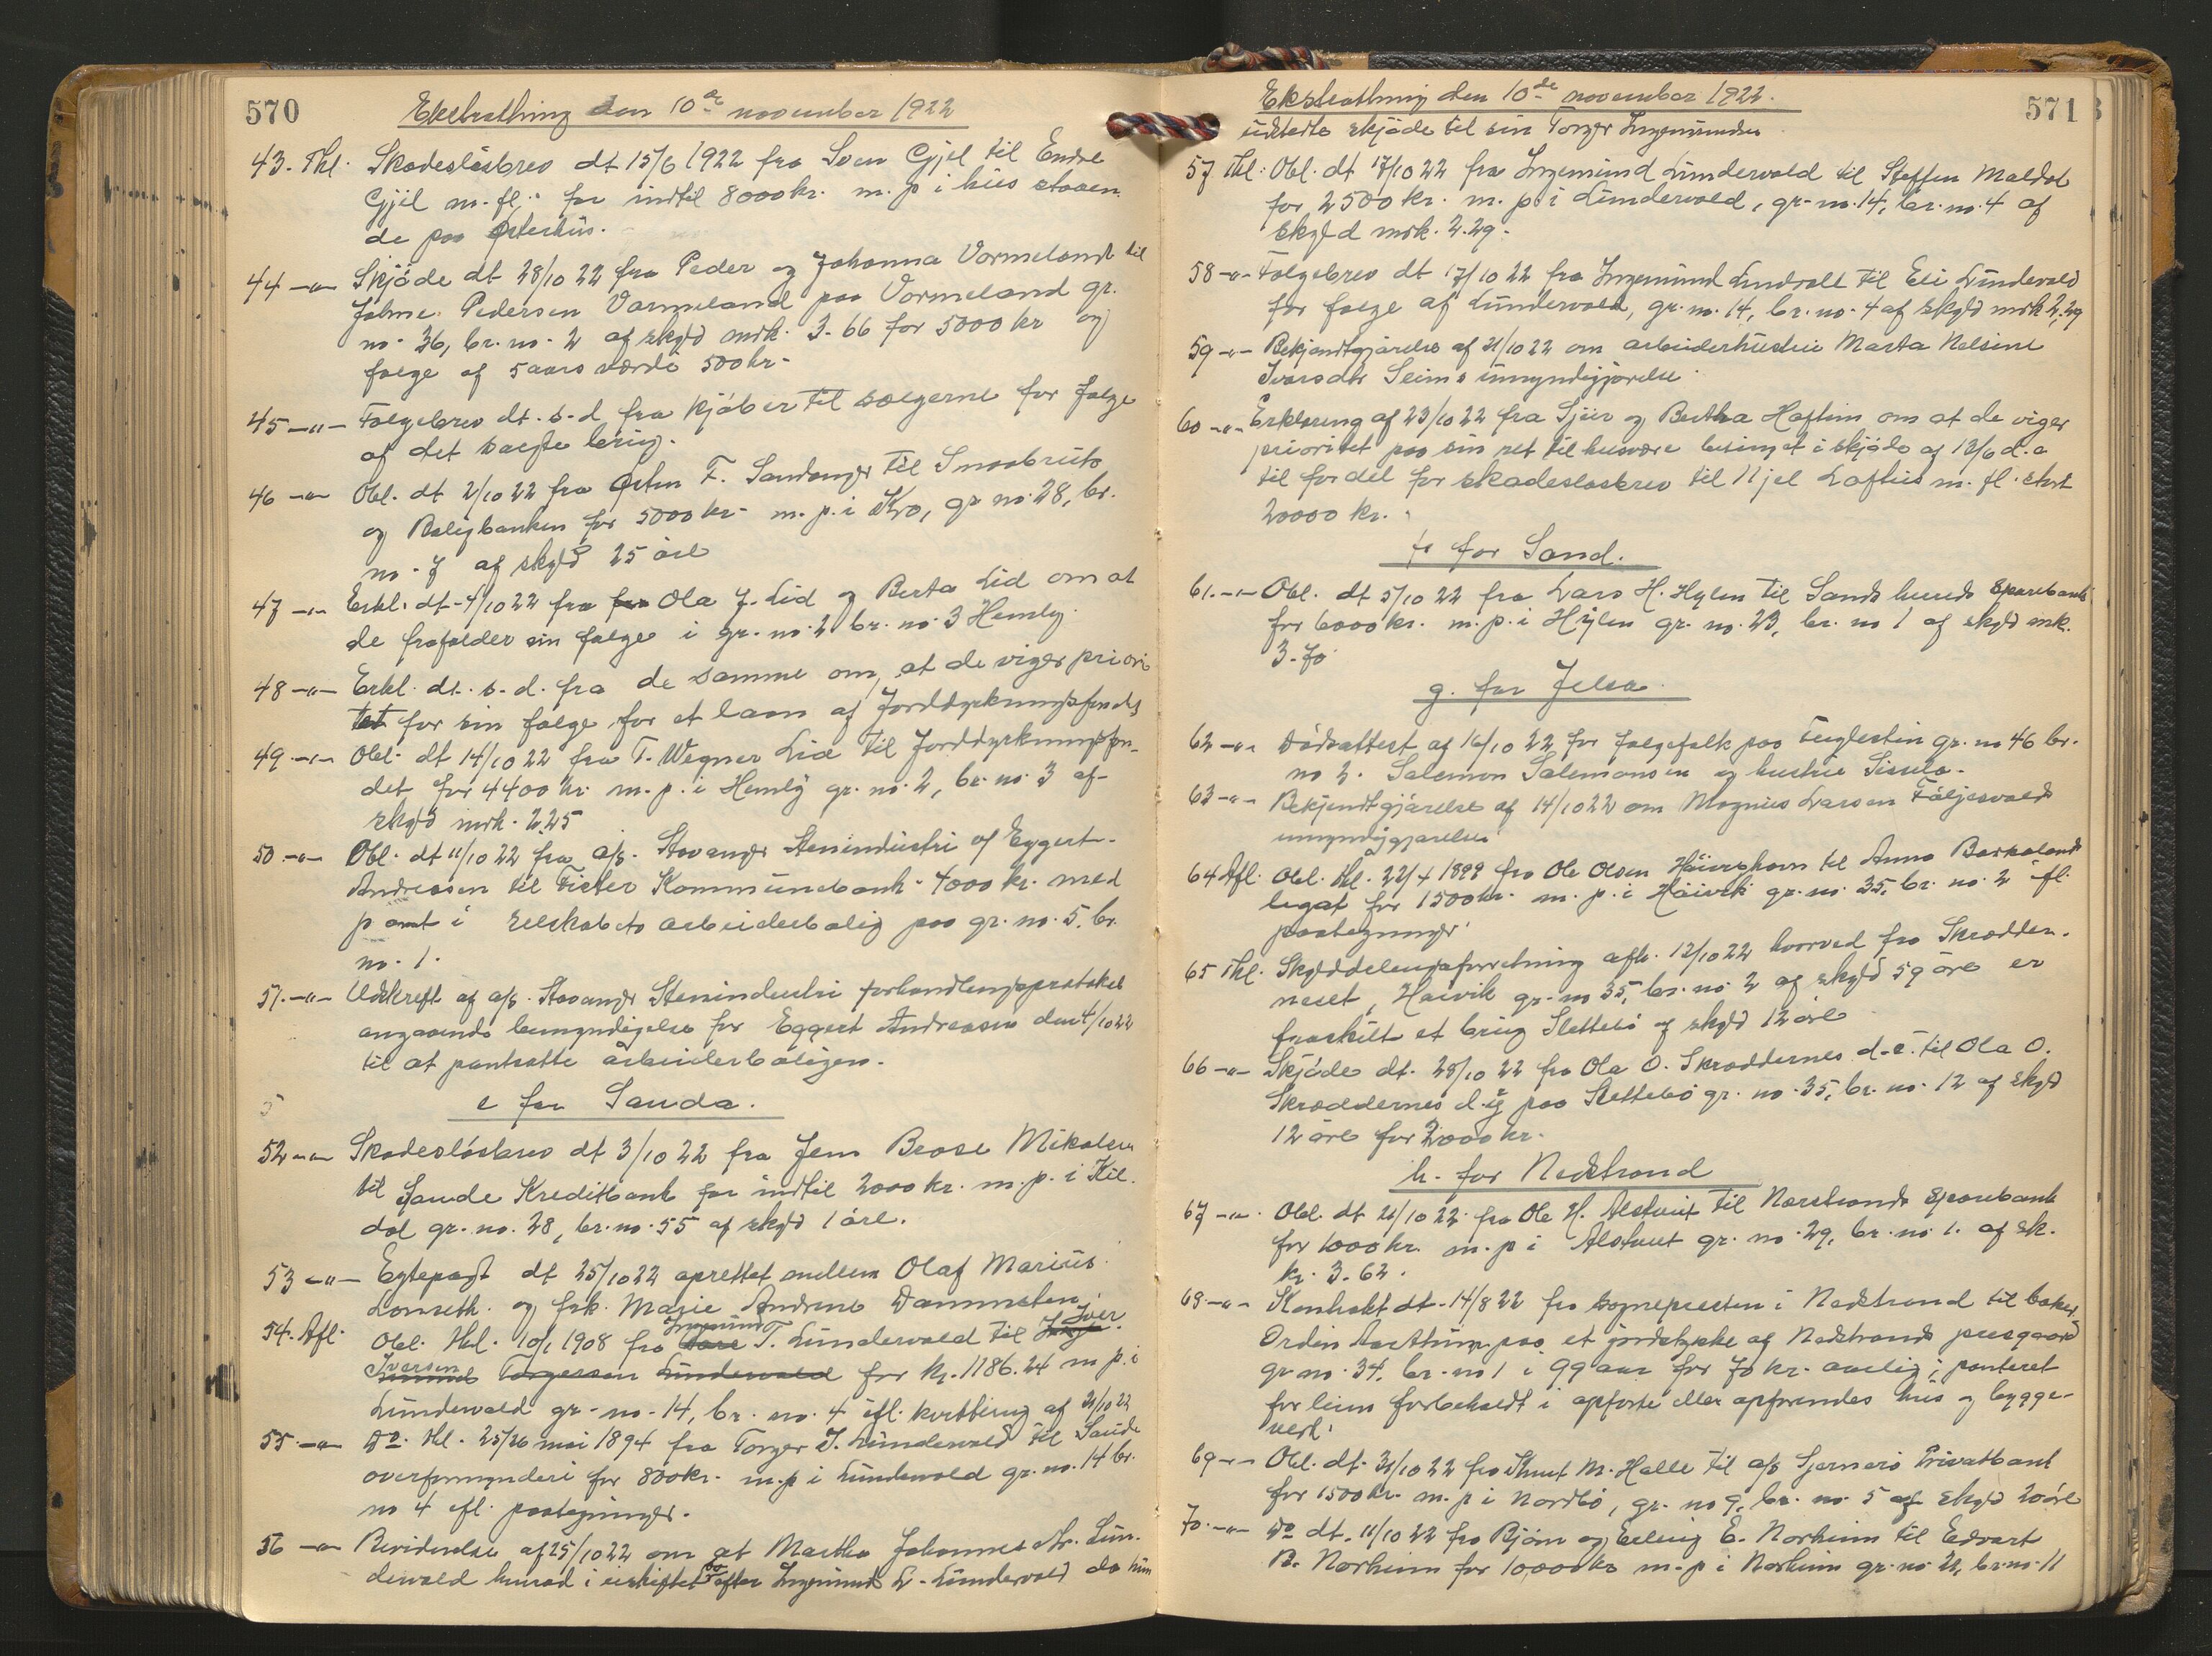 570
Ekstrathing den 10de november 1922
43. Thl. Skadeslösbrev dt 15/6 1922 fra Sven Gjil til Endre
Gjil m. fl. for indtil 8000 kr. m. p i hus staaen
de paa Østerhus.
44 -"- Skjöde dt 28/10 22 fra Peder og Johanna Vormeland til
Pedersen Varmeland paa Vormeland gr.
no. 36, br. no. 2 af skyld mrk. 3.66 for 5000 kr og
følge af 5 aars værdi 500 kr.
45 -"- Følgebrev dt. s. d fra kjöber til sælgerne for følge
af det brug.
46 -"- Obl. dt 2/10 22 fra Østen F. Sandanger til Smaabruks
og Boligbanken for 5000 kr. m. p. i Kro, gr no. 28, br.
no. 7 af skyld 25 öre
47 -"- Erkl. dt. 4/10 22 fra Ola J. Lid og Berta Lid om at
de frafalder sin følge i gr. no. 2 br. no. 3 Hemly
48 -"- Erkl. dt. s. d. fra de samme om, at de viger priori
tet for sin følge for et laan af Jorddyrkningsfondet
49 -"- Obl. dt 14/10 22 fra T. Wegner Lid til Jorddyrkningsfon-
det for 4400 kr. m. p. i Hemly gr. no. 2, br. no. 3 af
skyld mrk. 2.25
50 -"- Obl. dt 11/10 22 fra a/s. Stavanger Stenindustri af Eggert
Andreasen til Fister Kommunebank 4000 kr. med
pant i selskabets arbeiderbolig paa gr. no. 5. br.
no. 1.
51. -"- Udskrift af a/s. Stavanger Stenindustri forhandlingsprotokol
angaaende bemyndigelse for Eggert Andreasen den 4/10 22
til at pantsætte arbeiderboligen.
e for Sauda.
52 -"- Skadeslösbrev dt 3/10 22 fra Jens Mikalsen
til Saude Kreditbank for indtil 2000 kr. m. p. i Kil.
dal gr. no. 28, br. no. 55 af skyld 1 öre.
53 -"- Egtepagt dt 25/10 22 oprettet mellem Olaf Marius
og frk. Marie Andrine
54. Afl. Obl. thl. 10/1 1908 fra Ingemund T. Lundervold til Iver
Iversen Torgersen Lundervold for kr. 1186.24 m p. i
Lundervold gr. no. 14, br. no. 4 ifl. kvittering af 21/10 22
55 -"- Do. thl. 25/26 mai 1894 fra Torger I. Lundervold til Saude
overformynderi for 800 kr. m. p i Lundervold gr. no. 14 br.
no 4 ifl. paategninger.
56 -"- Bevidnelse af 25/10 22 om at Martha Johannes dtr. Lun.
dervold hensad i uskiftet bo efter Ingemund L. Lundervold da hun
571
Ekstrathing den 10de november 1922.
udstedte skjöde til sin Torger Ingemundsen
57 Thl. Obl. dt 17/10 22 fra Ingemund Lundervold til Steffen Maldal
for 2500 kr. m. p. i Lundervold, gr. no. 14, br. no. 4 af
skyld mrk. 2.29.
58 -"- Følgebrev dt 17/10 22 fra Ingemund til Eli Lundervold
for følge af Lundervold, gr. no. 14, br. no. 4 af skyld mrk 2.29
59 -"- Bekjendtgjörelse af 21/10 22 om arbeiderhustru Marta Nelsine
Ivarsdtr Seims umyndiggjörelse.
60 -"- Erklæring af 23/10 22 fra og Bertha om at de viger
prioritet paa sin ret til husvære betinget i skjöde af 12/6 d. a
til fordel for skadeslösbrev til Kjel Loftus m. fl. stort
20000 kr.
f for Sand.
61. -"- Obl. dt 5/10 22 fra Lars H. Hylen til Sands herreds sparebank
for 6000 kr. m. p. i Hylen gr. no. 23, br. no 1 af skyld mk.
3.70
g. for Jelsa.
62 -"- Dödsattest af 16/10 22 for følgefolk paa Fuglestein gr. no 46 br.
no 2. Salemon Salemonsen og hustru
63 -"- Bekjendtgjörelse af 14/10 22 om Magnus Larsen
umyndiggjörelse
64 Afl. Obl. thl. 22/4 1899 fra Ole Olsen til Anna
legat for 1500 kr. m. p. i Haivik gr. no. 35, br. no. 2 ifl.
paategninger
65 Thl. Skylddelingsforretning afh. 12/10 22 hvorved fra Skrædder-
neset, Haivik gr. no 35, br. no. 2 af skyld 59 öre er
fraskilt et brug Slettebö af skyld 12 öre
66 -"- Skjöde dt. 28/10 22 fra Ola O. Skræddernes d. e. til Ola O.
Skræddernes d. y paa Slettebö gr. no. 35, br. no. 12 af skyld
12 öre for 2000 kr.
h. for Nedstrand
67 -"- Obl. dt 21/10 22 fra Ole H. Alstveit til Nerstrands sparebank
for 1000 kr. m. p i Alstveit gr. no. 29, br. no 1. af sk.
kr. 3.62.
68 -"- Kontrakt dt. 14/8 22 fra sognepresten i Nedstrand til baker
Ordin paa et jordstykke af Nedstrands presgaard
gr no. 34, br. no 1 i 99 aar for 70 kr. aarlig; panteret
for leien forbeholdt i opførte eller opførendes hus og bygge-
verk.
69 -"- Obl. dt. 31/10 22 fra Knut M. Halle til a/s Sjernerö Privatbank
for 1500 kr. m. p i Nordbö, gr. no 9, br. no. 5 af skyld 20 öre
70. -"- Do dt. 11/10 22 fra Björn og Erling E. Norheim til Edvart
B. Norheim for 10,000 kr m. p i Norheim gr. no 21, br. no. 11